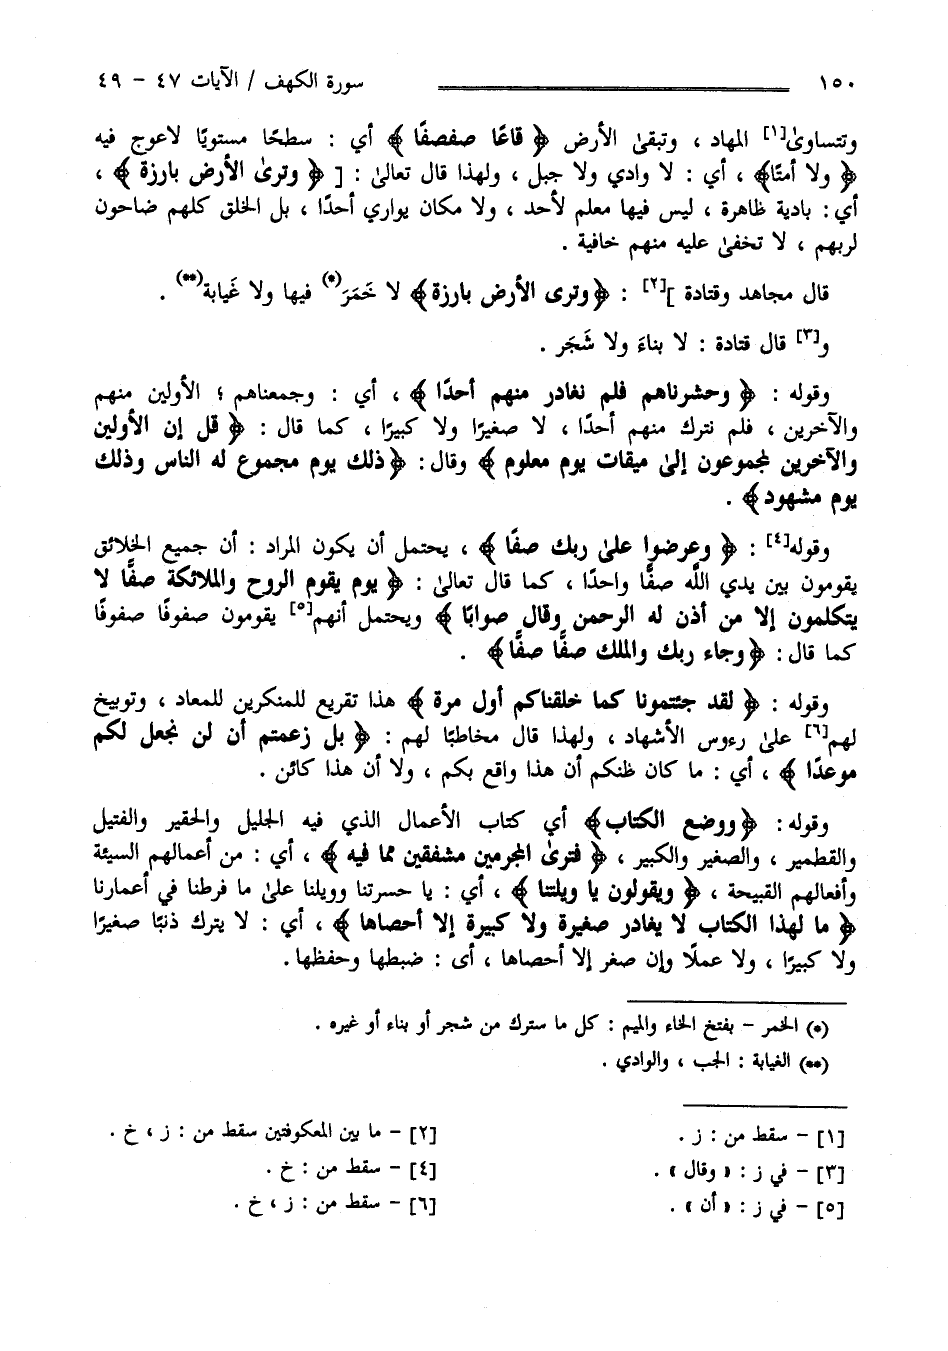 ١٥٠ سورة الكهف / الآيات ٤٧ - ٤٩
وتتساوىٰ[١] المهاد ، وتبقىٰ الأرض ﴿ قاعًا صفصفًا ﴾ أي : سطحًا مستويًا لاعوج فيه
﴿ ولا أمتًا﴾ ، أي : لا وادي ولا جبل ، ولهذا قال تعالىٰ : [ ﴿ وترىٰ الأرض بارزة ﴾ ،
أي : بادية ظاهرة ، ليس فيها معلم لأحد ، ولا مكان يواري أحدًا ، بل الخلق كلهم ضاحون
لربهم ، لا تخفىٰ عليه منهم خافية .
قال مجاهد وقتادة ][٢] : ﴿وترى الأرض بارزة﴾ لا خَمَرَ(*) فيها ولا غَيابة(**) .
و[٣] قال قتادة : لا بناءَ ولا شَجَر .
وقوله : ﴿ وحشرناهم فلم نغادر منهم أحدًا ﴾ ، أي : وجمعناهم ؛ الأولين منهم
والآخرين ، فلم نترك منهم أحدًا ، لا صغيرًا ولا كبيرًا ، كما قال : ﴿ قل إن الأولين
والآخرين لمجموعون إلىٰ ميقات يوم معلوم ﴾ وقال: ﴿ذلك يوم مجموع له الناس وذلك
يوم مشهود﴾ .
وقوله[٤] : ﴿ وعرضوا علىٰ ربك صفًا ﴾ ، يحتمل أن يكون المراد : أن جميع الخلائق
يقومون بين يدي اللَّه صفًّا واحدًا ، كما قال تعالىٰ : ﴿ يوم يقوم الروح والملائكة صفًّا لا
يتكلمون إلا من أذن له الرحمن وقال صوابًا ﴾ ويحتمل أنهم[٥] يقومون صفوفًا صفوفًا
كما قال: ﴿وجاء ربك والملك صفًّا صفًّا﴾ .
وقوله : ﴿ لقد جئتمونا كما خلقناكم أول مرة ﴾ هذا تقريع للمنكرين للمعاد ، وتوبيخ
لهم[٦] علىٰ رءوس الأشهاد ، ولهذا قال مخاطبًا لهم : ﴿ بل زعمتم أن لن نجعل لكم
موعدًا ﴾ ، أي : ما كان ظنكم أن هذا واقع بكم ، ولا أن هذا كائن .
وقوله: ﴿ووضع الكتاب﴾ أي كتاب الأعمال الذي فيه الجليل والحقير والفتيل
والقطمير ، والصغير والكبير ، ﴿ فترىٰ المجرمين مشفقين مما فيه ﴾ ، أي : من أعمالهم السيئة
وأفعالهم القبيحة ، ﴿ ويقولون يا ويلتنا ﴾ ، أي : يا حسرتنا وويلنا علىٰ ما فرطنا في أعمارنا
﴿ ما لهذا الكتاب لا يغادر صغيرة ولا كبيرة إلا أحصاها ﴾ ، أي : لا يترك ذنبًا صغيرًا
ولا كبيرًا ، ولا عملًا وإن صغر إلا أحصاها ، أى : ضبطها وحفظها.
(*) الخمر - بفتح الخاء والميم : كل ما سترك من شجر أو بناء أو غيره .
(**) الغيابة : الجب ، والوادي .
[١] - سقط من : ز . [٢] - ما بين المعكوفتين سقط من : ز ، خ .
[٣] - في ز : « وقال » . [٤] - سقط من : خ .
[٥] - في ز : « أن » . [٦] - سقط من : ز ، خ .